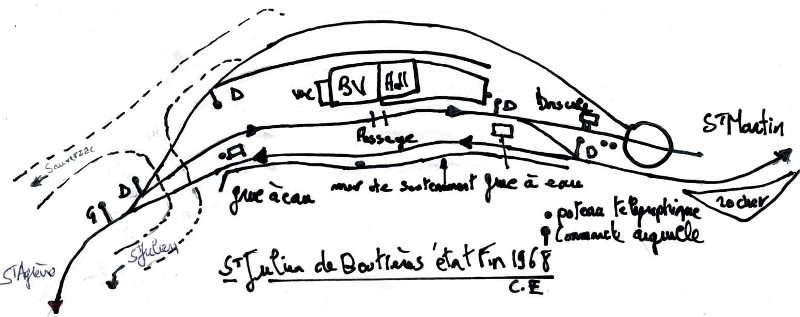 WC
BV
Hall
D
D
Bascule
Sᵗ Martin
Passage
Sauverzac
D
G
D
grue à eau
mur de soutenement
grue à eau
rocher
Sᵗ Julien
Sᵗ Agrève
poteau telegraphique
Commande aiguille
Sᵗ Julien de Boutières état Fin 1968
C.E